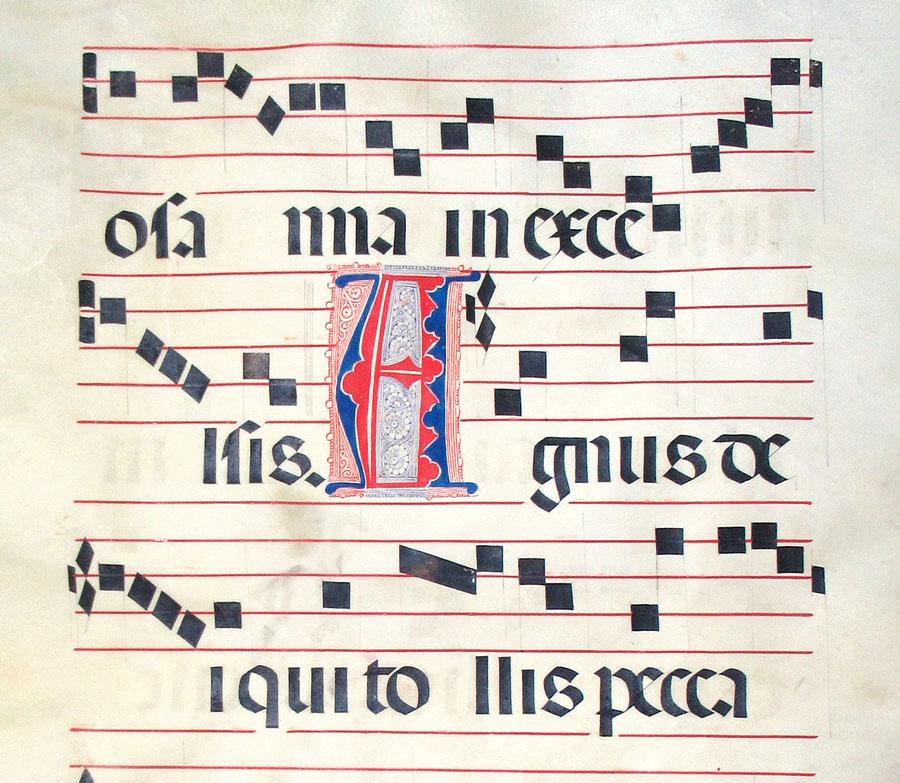 osa nna in exce
lsis. A gnus de
i qui to llis pecca